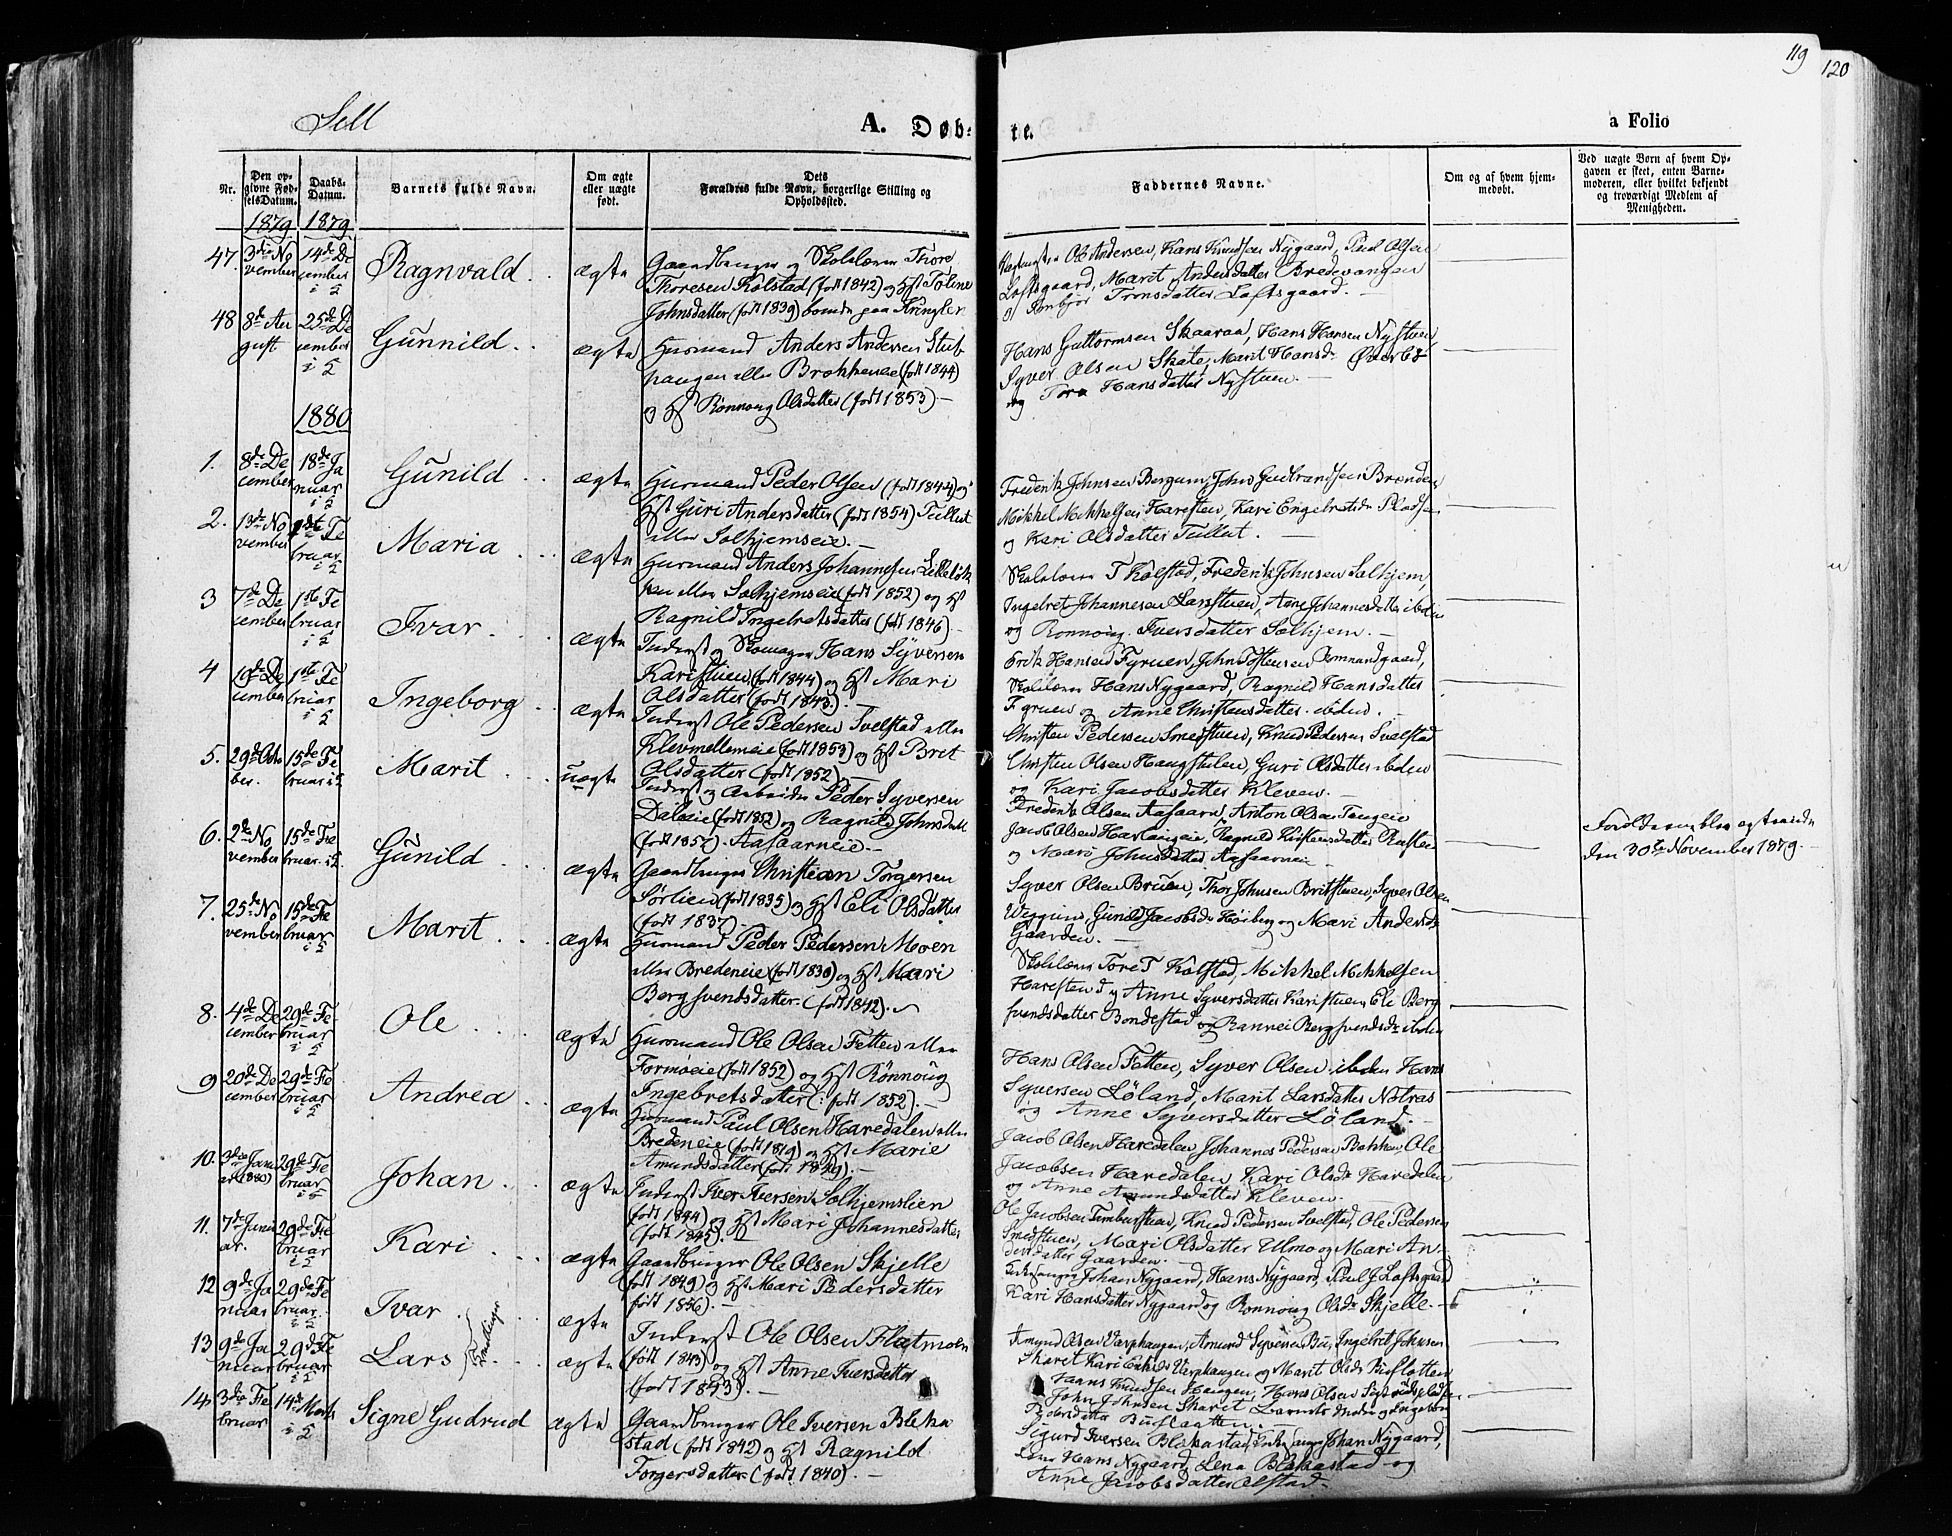 119
120
Sell
A. Døb-
te.
a Folio
Nr.
Den op-
givne Fød-
selsDatum.
Daabs-
Datum.
Barnets fulde Navn.
Om ægte
eller uægte
født.
Dets
Forældres fulde Navn, borgerlige Stilling og
Opholdssted.
Faddernes Navne.
Om og af hvem hjem-
medøbt.
Ved uægte Børn af hvem Op-
gaven er skeet, enten Barne-
moderen, eller hvilket bekjendt
og troværdigt Medlem af
Menigheden.
1879 1879
47. 3die No
vember
14de De
cember
i S
Ragnvald
ægte
Gaardbruger og Skolelærer Thore
Thoresen Kolstad (født 1842) og Hst Toline
Johnsdatter (født 1839) boende paa Kringlen
Ole Andersen, Hans Knudsen Nygaard, Paul Olsen
Loftsgaard, Marit Andersdatter Bredevangen
og Rønbjør Tronsdatter Loftsgaard.
48 8de Au
gust
25de De
cember
i S
Gunnild
ægte
Husmand Anders Andersen Stub
haugen eller Brækkeneie (født 1844)
og Hst Rønnoug Olsdatter (født 1853)
Hans Guttormsen Skaaraa, Hans Hansen Nystuen,
Syver Olsen Skate, Marit Hansdr Øverbø
og Tora Hansdatter Nystuen.
1880
1. 8de De
cember
18de Ja
nuar
i S
Gunild
ægte
Husmand Peder Olsen (født 1844) og
Hst Guri Andersdatter (født 1854) Tullut
eller Solhjemseie.
Frederik Johnsen Bergum, John Gudbrandsen Brænden
Mikkel Mikkelsen Harestuen, Kari Engebretsdr Pladsen
og Kari Olsdatter Tullut.
2. 13de No
vember
1ste Fe
bruar
i S
Maria
ægte
Husmand Anders Johannesen Lilleløk
ken eller Solhjemseie (født 1852) og Hst
Ragnild Ingebretsdatter (født 1846)
Skolelærer T Kolstad, Frederik Johnsen Solhjem,
Ingebret Johannesen Larsstuen, Anne Johannesdatter ibiden
og Rønnoug Iversdatter Solhjem.
3 7de De
cember
1ste Fe
bruar
i S
Ivar
ægte
Inderst og Skomager Hans Syversen
Karistuen (født 1844) og Hst Mari
Olsdatter (født 1843).
Erik Hansen Fyruen, John Tostensen Romundgaard,
Skolelærer Hans Nygaard, Ragnild Hansdatter
Fyruen og Anne Christensdatter ibiden.
4 10de De
cember
1ste Fe
bruar
i S
Ingeborg
ægte
Inderst Ole Pedersen Svelstad eller
Klevmellemeie (født 1853) og Hst Brit
Olsdatter (født 1852)
Christen Pedersen Smedstuen, Knud Pedersen Svelstad
Christen Olsen Haugstulen, Guri Olsdatter ibiden
og Kari Jacobsdatter Kleven.
5. 29de Octo
ber.
15de Fe
bruar i S
Marit
uægte
Inderst og Arbeider Peder Syversen
Daleeie (født 1852) og Ragnild Johnsdatt
(født 1857). Aasaarneie.
Frederik Olsen Aasaaren, Anton Olsen Taageie
Jacob Olsen Harlaugeie, Ragnild Kristensdatter
og Mari Johnsdatter Aasaarneie
Forældrene blev ægteviede
den 30te November 1879.
6. 2den No
vember
15de Fe
bruar i S
Gunild
ægte
Gaardbruger Christian Torgersen
Sørlien (født 1835) og Hst Eli Olsdatter
(født 1837)
Syver Olsen Bruen, Thor Johnsen Britstuen, Syver Olsen
Viggum, Gunild Jacobsdr Høiberg og Mari Andersdr
Gaarden.
7. 25de No
vember
15de Fe
bruar
i S
Marit
ægte
Husmand Peder Pedersen Moen
eller Bredeneie (født 1830) og Hst Mari
Bergsvendsdatter (født 1842).
Skolelærer Tore T Kolstad, Mikkel Mikkelsen
Harestuen og Anne Syversdatter Karistuen, Eli Berg
svendsdatter Bondestad og Rannei Bergsvendsdr ibiden
8. 4de De
cember
29de Fe
bruar
i S
Ole
ægte
Husmand Ole Olsen Fetten eller
Formoeie (født 1852) og Hst Rønnoug
Ingebretsdatter (født 1852).
Hans Olsen Fetten, Syver Olsen ibiden Hans
Syversen Løland, Marit Larsdatter Nølras
og Anne Syversdatter Løland.
9 20de De
cember
29de Fe
bruar
i S
Andrea
ægte
Husmand Paul Olsen Haredalen eller
Bredeneie (født 1819) og Hst Marie
Amundsdatter (født 1849).
Jacob Olsen Haredalen, Johannes Pedersen Bakken, Ole
Jacobsen Haredalen Kari Olsdr Haredalen
og Anne Amundsdatter Kleven.
10. 3die Janu
ar (1880)
29de Fe
bruar
i S
Johan
ægte
Inderst Iver Iversen Solhjemslien
(født 1844) og Hst Mari Johannesdatter
(født 1845).
Ole Jacobsen Timberstuen, Knud Pedersen Svelstad, Ole Pedersen
Smedstuen, Mari Olsdatter Ulmo og Mari An-
dersdatter Gaarden.
11. 7de Janu
ar.
29de Fe
bruar
i S
Kari
ægte
Gaardbruger Ole Olsen Skjelle
(født 1849) og Hst Mari Pedersdatter
født 1856).
Kirkesanger Johan Nygaard, Hans Nygaard, Paul J. Loftsgaard
Kari Hansdatter Nygaard og Rønnoug Olsdr Skjelle.
12 9de Ja
nuar
29de Fe
bruar.
i S
Ivar
ægte
Inderst Ole Olsen Flatmoen
(født 1843) og Hst Anne Iversdatter
(født 1843).
Amund Olsen Varphaugen, Amund Syversen Bu, Ingebret Johnsen
Skaret Kari Eriksdr Varphaugen og Marit Olsdr Buslaatten
13 9de Ja
nuar
29de Fe
bruar
i S
Lars
Tvillinger
ægte
Hans Knudsen Haugen, Hans Olsen Sigurdspladsen
John Johnsen Skaret Barnets Moder og Ingeborg
Pedersdatter Buslaatten.
14 3die Fe
bruar
14de Marts
i S
Signe Gudrud
ægte
Gaardbruger Ole Iversen Bleka
stad (født 1842) og Hst Ragnild
Torgersdatter (født 1840).
Sigurd Iversen Blekastad, Kirkesanger Johan Nygaard,
Hans Nygaard, Lena Blekastad og
Anne Jacobsdatter Olstad.